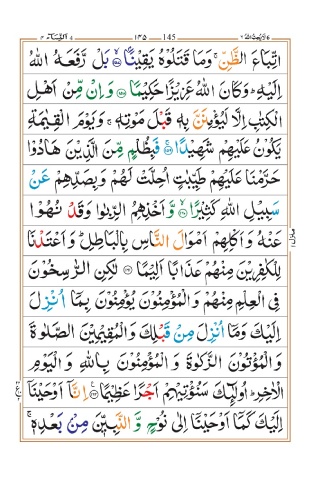 ١٣٥ 145
اتِّبَاعَ الظَّنِّ ۚ وَمَا قَتَلُوْهُ يَقِيْنًا ۙ﴿۱۵۷﴾ بَلْ رَّفَعَهُ اللّٰهُ
اِلَيْهِ ؕ وَكَانَ اللّٰهُ عَزِيْزًا حَكِيْمًا ﴿۱۵۸﴾ وَاِنْ مِّنْ اَهْلِ
الْكِتٰبِ اِلَّا لَيُؤْمِنَنَّ بِهٖ قَبْلَ مَوْتِهٖ ۚ وَيَوْمَ الْقِيٰمَةِ
يَكُوْنُ عَلَيْهِمْ شَهِيْدًا ۚ﴿۱۵۹﴾ فَبِظُلْمٍ مِّنَ الَّذِيْنَ هَادُوْا
حَرَّمْنَا عَلَيْهِمْ طَيِّبٰتٍ اُحِلَّتْ لَهُمْ وَبِصَدِّهِمْ عَنْ
سَبِيْلِ اللّٰهِ كَثِيْرًا ۙ﴿۱۶۰﴾ وَّاَخْذِهِمُ الرِّبٰوا وَقَدْ نُهُوْا
عَنْهُ وَاَكْلِهِمْ اَمْوَالَ النَّاسِ بِالْبَاطِلِ ؕ وَاَعْتَدْنَا
لِلْكٰفِرِيْنَ مِنْهُمْ عَذَابًا اَلِيْمًا ﴿۱۶۱﴾ لٰكِنِ الرّٰسِخُوْنَ
فِى الْعِلْمِ مِنْهُمْ وَالْمُؤْمِنُوْنَ يُؤْمِنُوْنَ بِمَاۤ اُنْزِلَ
اِلَيْكَ وَمَاۤ اُنْزِلَ مِنْ قَبْلِكَ وَالْمُقِيْمِيْنَ الصَّلٰوةَ
وَالْمُؤْتُوْنَ الزَّكٰوةَ وَالْمُؤْمِنُوْنَ بِاللّٰهِ وَالْيَوْمِ
الْاٰخِرِ ؕ اُولٰٓئِكَ سَنُؤْتِيْهِمْ اَجْرًا عَظِيْمًا ﴿۱۶۲﴾ اِنَّاۤ اَوْحَيْنَاۤ
اِلَيْكَ كَمَاۤ اَوْحَيْنَاۤ اِلٰى نُوْحٍ وَّالنَّبِيّٖنَ مِنْۢ بَعْدِهٖ ۚ